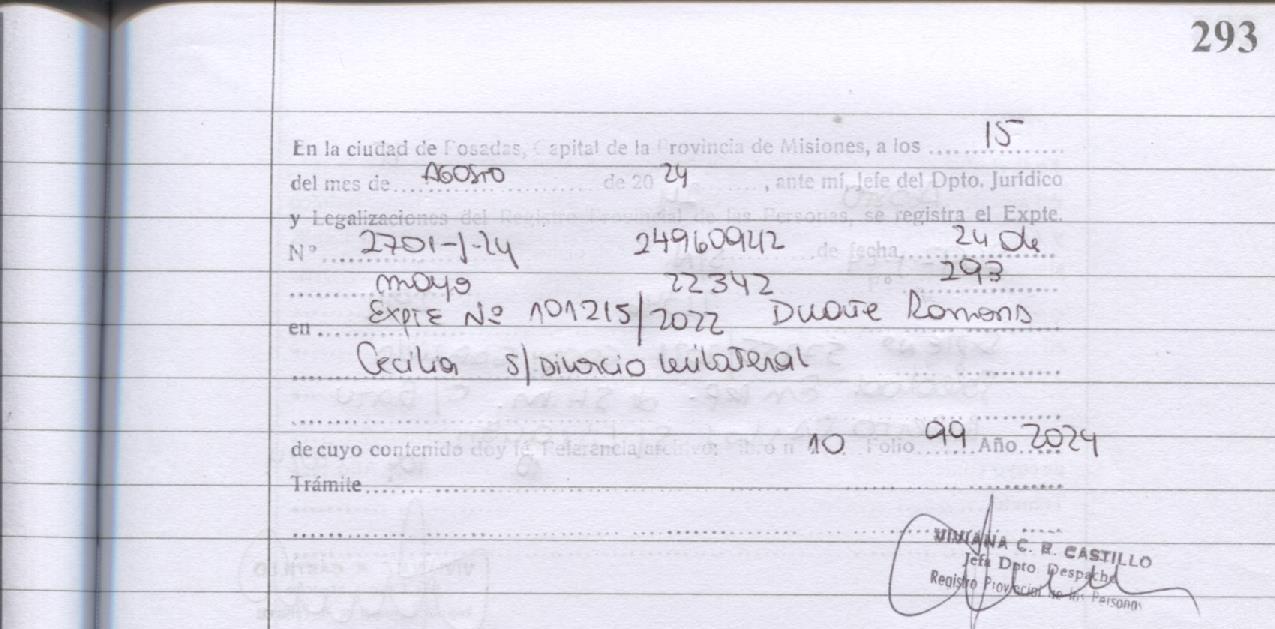 293
En la ciudad de Posadas, Capital de la Provincia de Misiones, a los ..... 15
del mes de ..... AGOSTO ..... de 20 24 ..... , ante mí, Jefe del Dpto. Jurídico
y Legalizaciones del Registro Provincial de las Personas, se registra el Expte.
Nº ..... 2701-J-24 24960942 ..... de fecha ..... 24 de
mayo 22342 293
en ..... EXPTE Nº 101215/2022 Duarte Ramona
Cecilia S/Divorcio Unilateral
de cuyo contenido doy fe. Referencia/archivo: Libro nº 10 Folio 99 Año 2024
Trámite
VIVIANA C. R. CASTILLO
Jefa Dpto Despacho
Registro Provincial de las Personas